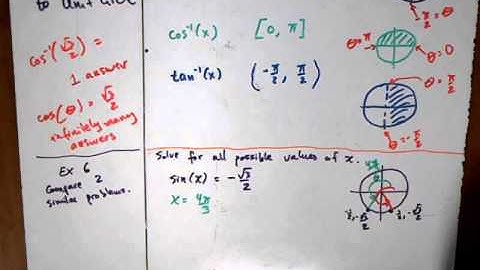 to unit circle
cos⁻¹(√3/2) =
1 answer
cos(θ) = √3/2
infinitely many
answers
cos⁻¹(x) [0, π]
tan⁻¹(x) (-π/2, π/2)
π/2
θ=π
θ=0
θ=π/2
θ=-π/2
Ex 6
Compare 2
similar problems.
Solve for all possible values of x.
sin(x) = -√3/2
x = 4π/3
4π/3
-½, -√3/2
½, -√3/2